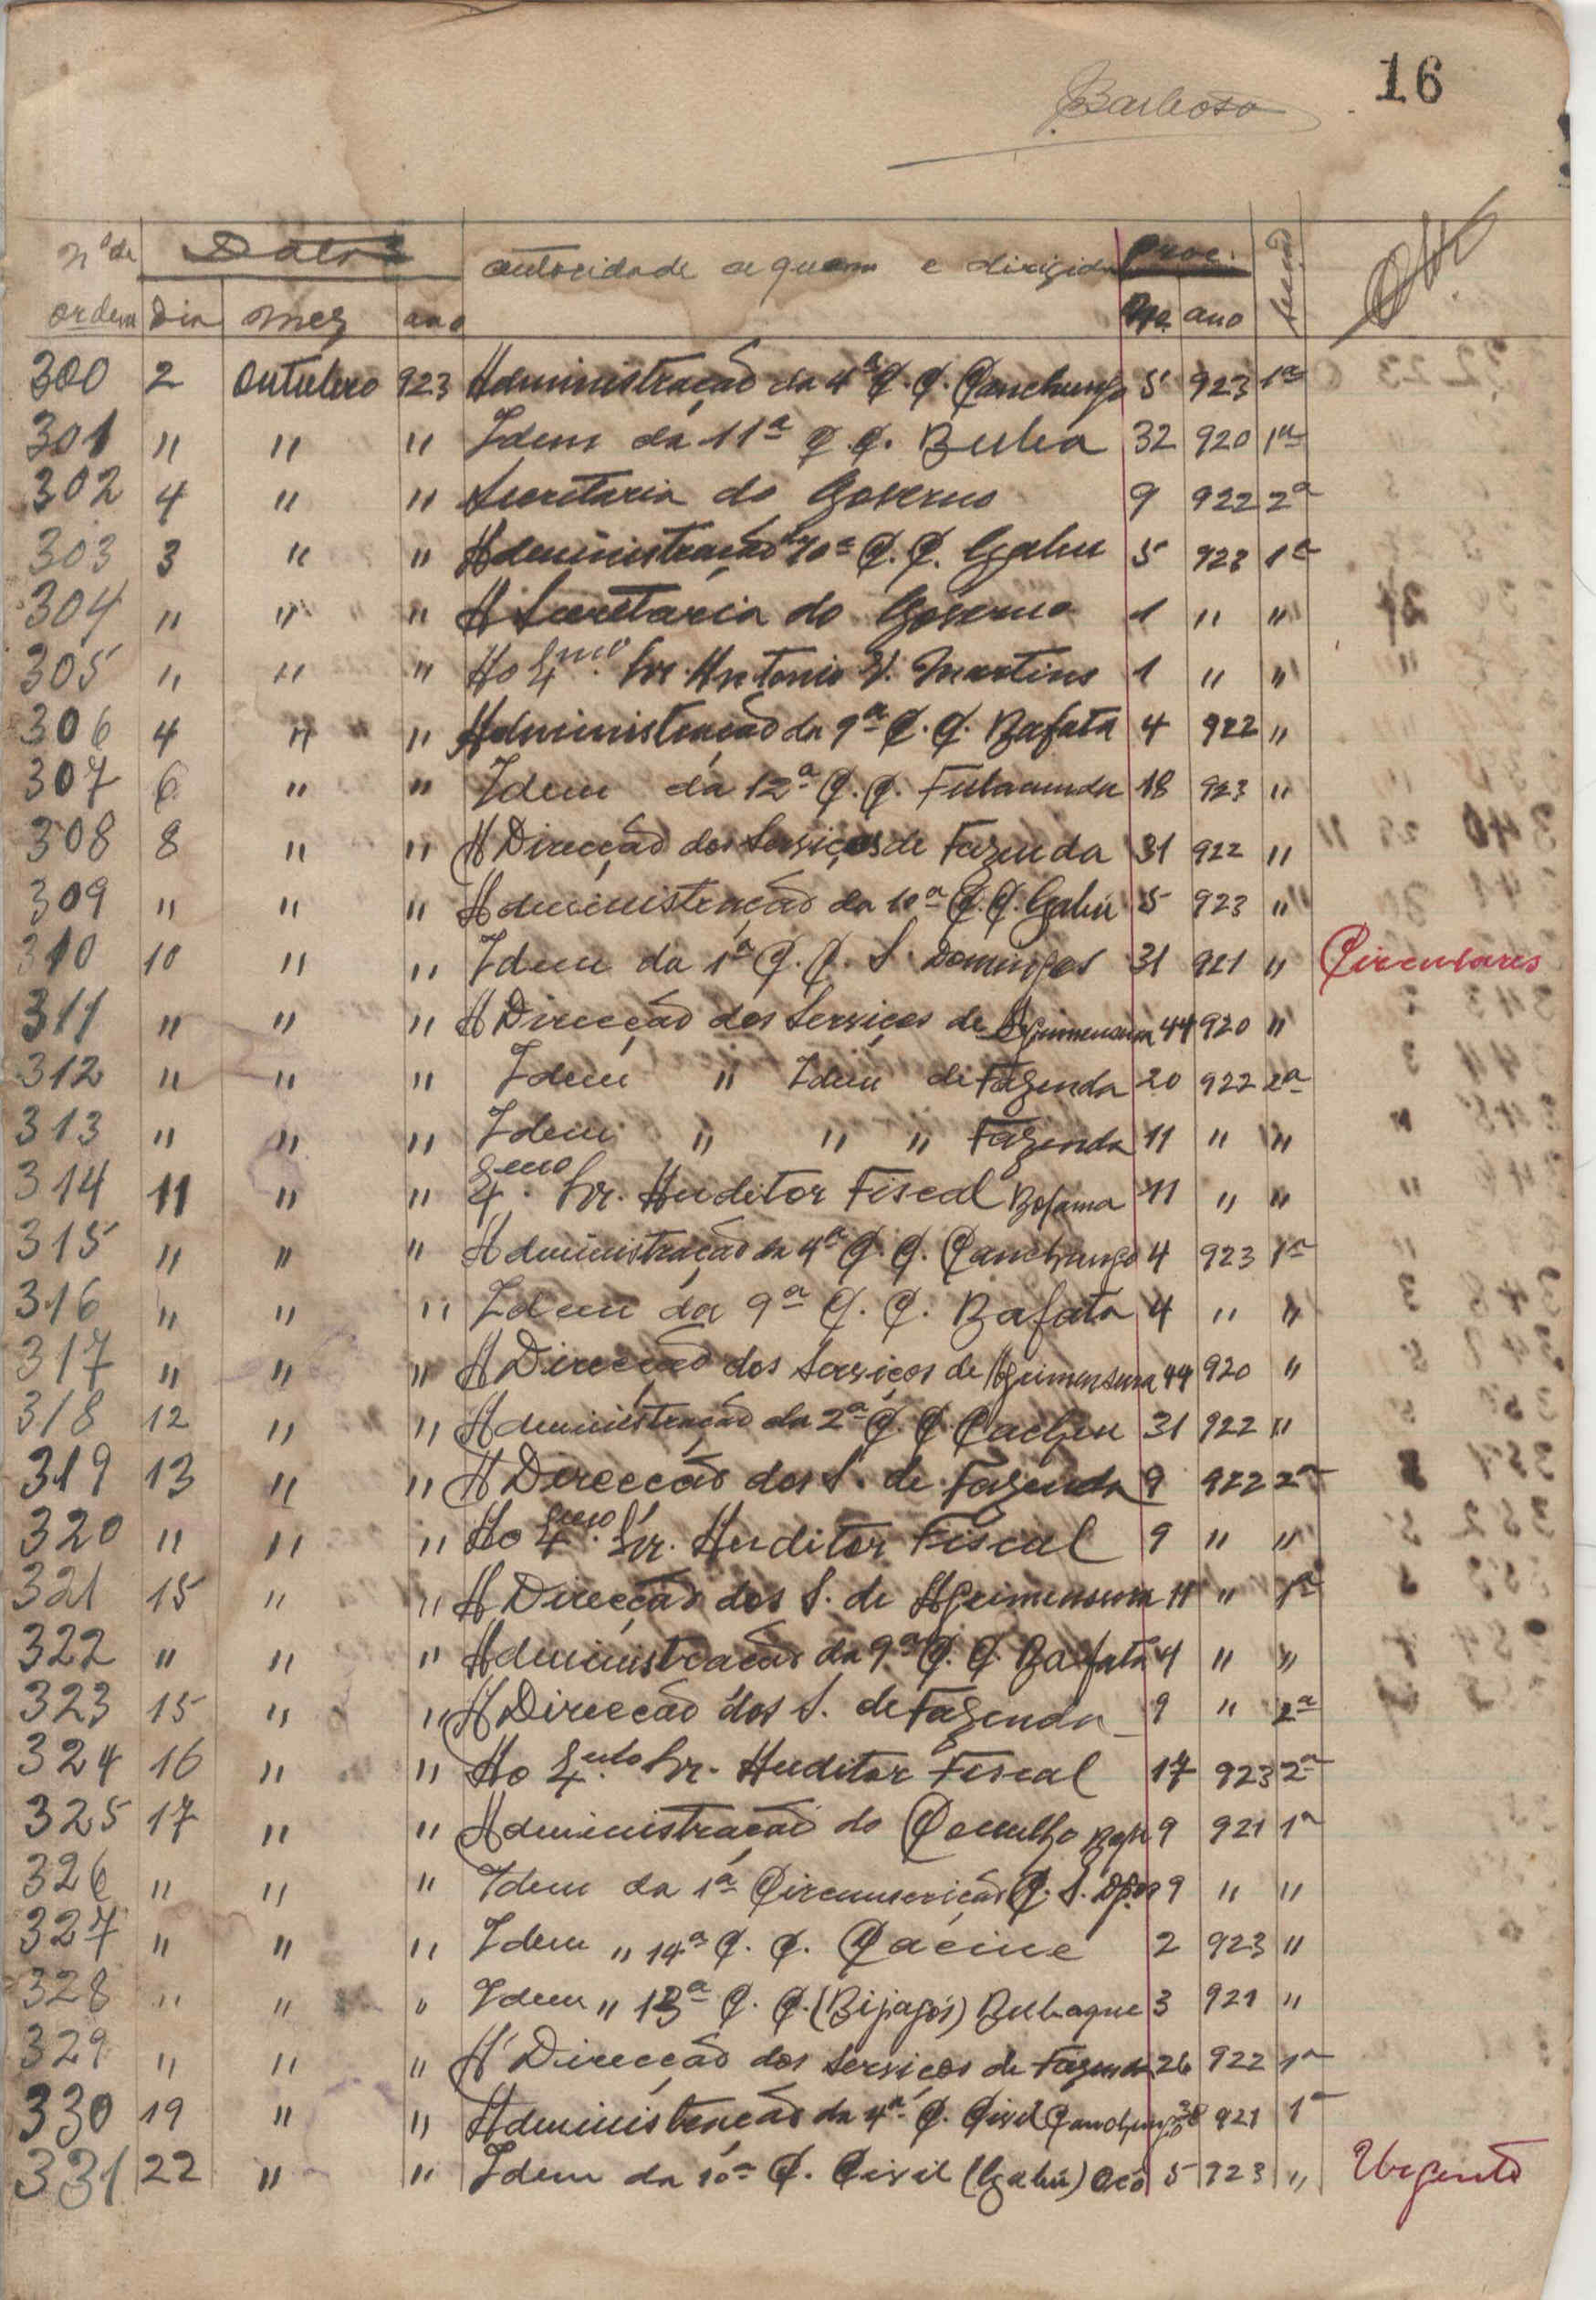 16
Barbosa
Nº de Datas autoridade a quem é dirigida Proc.
ordem dia mez ano Nº ano
300 2 Outubro 923 Administração da 4ª C. C. Canchungo 5 923 1ª
301 " " " Idem da 11ª C. C. Buba 32 920 1ª
302 4 " " Secretaria do Governo 9 922 2ª
303 3 " " Administração da 10ª C. C. Gabu 5 923 1ª
304 " " " A Secretaria do Governo 1 " "
305 " " " Ao Exmo. Snr. Antonio Martins 1 " "
306 4 " " Administração da 9ª C. C. Bafata 4 922 "
307 6 " " Idem da 12ª C. C. Fulacunda 18 923 "
308 8 " " A Direcção dos Serviços de Fazenda 31 922 "
309 " " " Administração da 10ª C. C. Gabú 5 923 "
310 10 " " Idem da 1ª C. C. S. Domingos 31 921 " Circulares
311 " " " A Direcção dos Serviços de Agrimensura 44 920 "
312 " " " Idem " Idem de Fazenda 20 922 2ª
313 " " " Idem " " " Fazenda 11 " "
314 11 " " Exmo. Snr. Auditor Fiscal Bolama 11 " "
315 " " " Administração da 4ª C. C. Canchungo 4 923 1ª
316 " " " Idem da 9ª C. C. Bafata 4 " "
317 " " " A Direcção dos Serviços de Agrimensura 44 920 "
318 12 " " Administração da 2ª C. C. Cacheu 31 922 "
319 13 " " A Direcção dos S. de Fazenda 9 922 2ª
320 " " " Ao Exmo. Snr. Auditor Fiscal 9 " "
321 15 " " A Direcção dos S. de Agrimensura 11 " 1ª
322 " " " Administração da 9ª C. C. Bafata 4 " "
323 15 " " A Direcção dos S. de Fazenda 9 " 2ª
324 16 " " Ao Exmo. Snr. Auditor Fiscal 17 923 2ª
325 17 " " Administração do Concelho 9 921 1ª
326 " " " Idem da 1ª Circunscrição C. S. 9 " "
327 " " " Idem " 14ª C. C. Cacine 2 923 "
328 " " " Idem " 13ª C. C. (Bijagós) Bubaque 3 921 "
329 " " " A Direcção dos Serviços de Fazenda 26 922 1ª
330 19 " " Administração da 4ª C. Civil Canchungo 38 921 1ª
331 22 " " Idem da 10ª C. Civil (Gabú) Oco 5 923 " Urgente